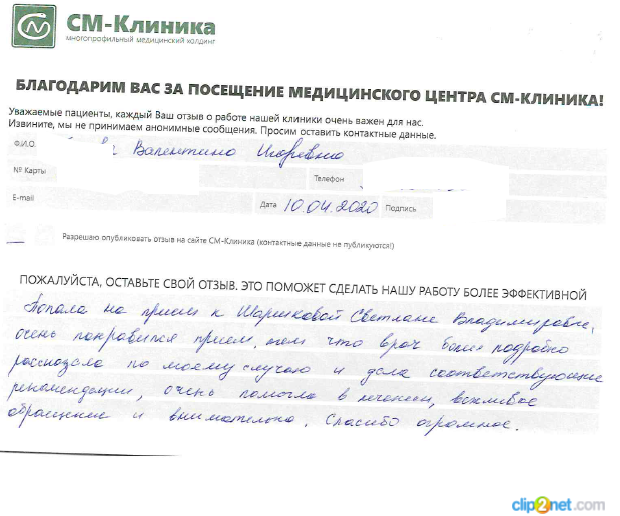 СМ-Клиника
многопрофильный медицинский холдинг
БЛАГОДАРИМ ВАС ЗА ПОСЕЩЕНИЕ МЕДИЦИНСКОГО ЦЕНТРА СМ-КЛИНИКА!
Уважаемые пациенты, каждый Ваш отзыв о работе нашей клиники очень важен для нас.
Извините, мы не принимаем анонимные сообщения. Просим оставить контактные данные.
Ф.И.О. Валентина Игоревна
№ Карты Телефон
E-mail Дата 10.04.2020 Подпись
Разрешаю опубликовать отзыв на сайте СМ-Клиника (контактные данные не публикуются!)
ПОЖАЛУЙСТА, ОСТАВЬТЕ СВОЙ ОТЗЫВ. ЭТО ПОМОЖЕТ СДЕЛАТЬ НАШУ РАБОТУ БОЛЕЕ ЭФФЕКТИВНОЙ
Попала на прием к Шариковой Светлане Владимировне,
очень понравился прием, тем что врач более подробно
рассказала по моему случаю и дала соответствующие
рекомендации, очень помогла в лечении, вежливое
обращение и внимательно. Спасибо огромное.
clip2net.com